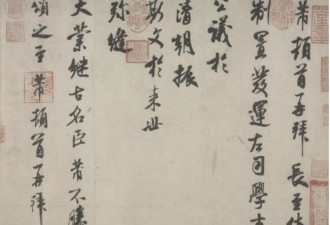 芾頓首再拜 長至
制置發運左司學士
公議於
清朝振
斯文於来世
弥縫
大業継古名臣芾不勝
頌之至芾頓首再拜